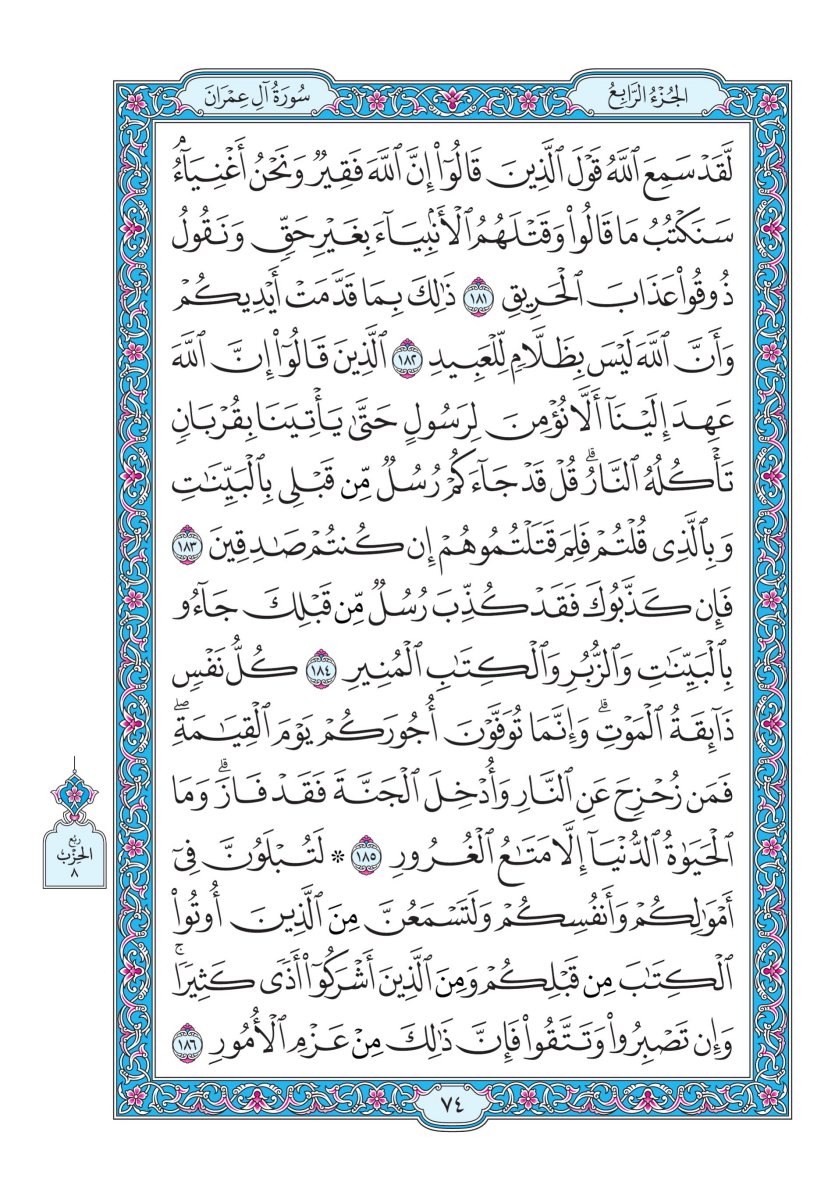 الجُزْءُ الرَّابِعُ
سُورَةُ آلِ عِمْرَانَ
لَّقَدْ سَمِعَ ٱللَّهُ قَوْلَ ٱلَّذِينَ قَالُوٓاْ إِنَّ ٱللَّهَ فَقِيرٞ وَنَحۡنُ أَغۡنِيَآءُۘ
سَنَكۡتُبُ مَا قَالُواْ وَقَتۡلَهُمُ ٱلۡأَنۢبِيَآءَ بِغَيۡرِ حَقّٖ وَنَقُولُ
ذُوقُواْ عَذَابَ ٱلۡحَرِيقِ ١٨١ ذَٰلِكَ بِمَا قَدَّمَتۡ أَيۡدِيكُمۡ
وَأَنَّ ٱللَّهَ لَيۡسَ بِظَلَّامٖ لِّلۡعَبِيدِ ١٨٢ ٱلَّذِينَ قَالُوٓاْ إِنَّ ٱللَّهَ
عَهِدَ إِلَيۡنَآ أَلَّا نُؤۡمِنَ لِرَسُولٍ حَتَّىٰ يَأۡتِيَنَا بِقُرۡبَانٖ
تَأۡكُلُهُ ٱلنَّارُۗ قُلۡ قَدۡ جَآءَكُمۡ رُسُلٞ مِّن قَبۡلِي بِٱلۡبَيِّنَٰتِ
وَبِٱلَّذِي قُلۡتُمۡ فَلِمَ قَتَلۡتُمُوهُمۡ إِن كُنتُمۡ صَٰدِقِينَ ١٨٣
فَإِن كَذَّبُوكَ فَقَدۡ كُذِّبَ رُسُلٞ مِّن قَبۡلِكَ جَآءُو
بِٱلۡبَيِّنَٰتِ وَٱلزُّبُرِ وَٱلۡكِتَٰبِ ٱلۡمُنِيرِ ١٨٤ كُلُّ نَفۡسٖ
ذَآئِقَةُ ٱلۡمَوۡتِۗ وَإِنَّمَا تُوَفَّوۡنَ أُجُورَكُمۡ يَوۡمَ ٱلۡقِيَٰمَةِۖ
فَمَن زُحۡزِحَ عَنِ ٱلنَّارِ وَأُدۡخِلَ ٱلۡجَنَّةَ فَقَدۡ فَازَۗ وَمَا
ٱلۡحَيَوٰةُ ٱلدُّنۡيَآ إِلَّا مَتَٰعُ ٱلۡغُرُورِ ١٨٥ ۞ لَتُبۡلَوُنَّ فِيٓ
أَمۡوَٰلِكُمۡ وَأَنفُسِكُمۡ وَلَتَسۡمَعُنَّ مِنَ ٱلَّذِينَ أُوتُواْ
ٱلۡكِتَٰبَ مِن قَبۡلِكُمۡ وَمِنَ ٱلَّذِينَ أَشۡرَكُوٓاْ أَذٗى كَثِيرٗاۚ
وَإِن تَصۡبِرُواْ وَتَتَّقُواْ فَإِنَّ ذَٰلِكَ مِنۡ عَزۡمِ ٱلۡأُمُورِ ١٨٦
ربع
الحِزْب
٨
٧٤